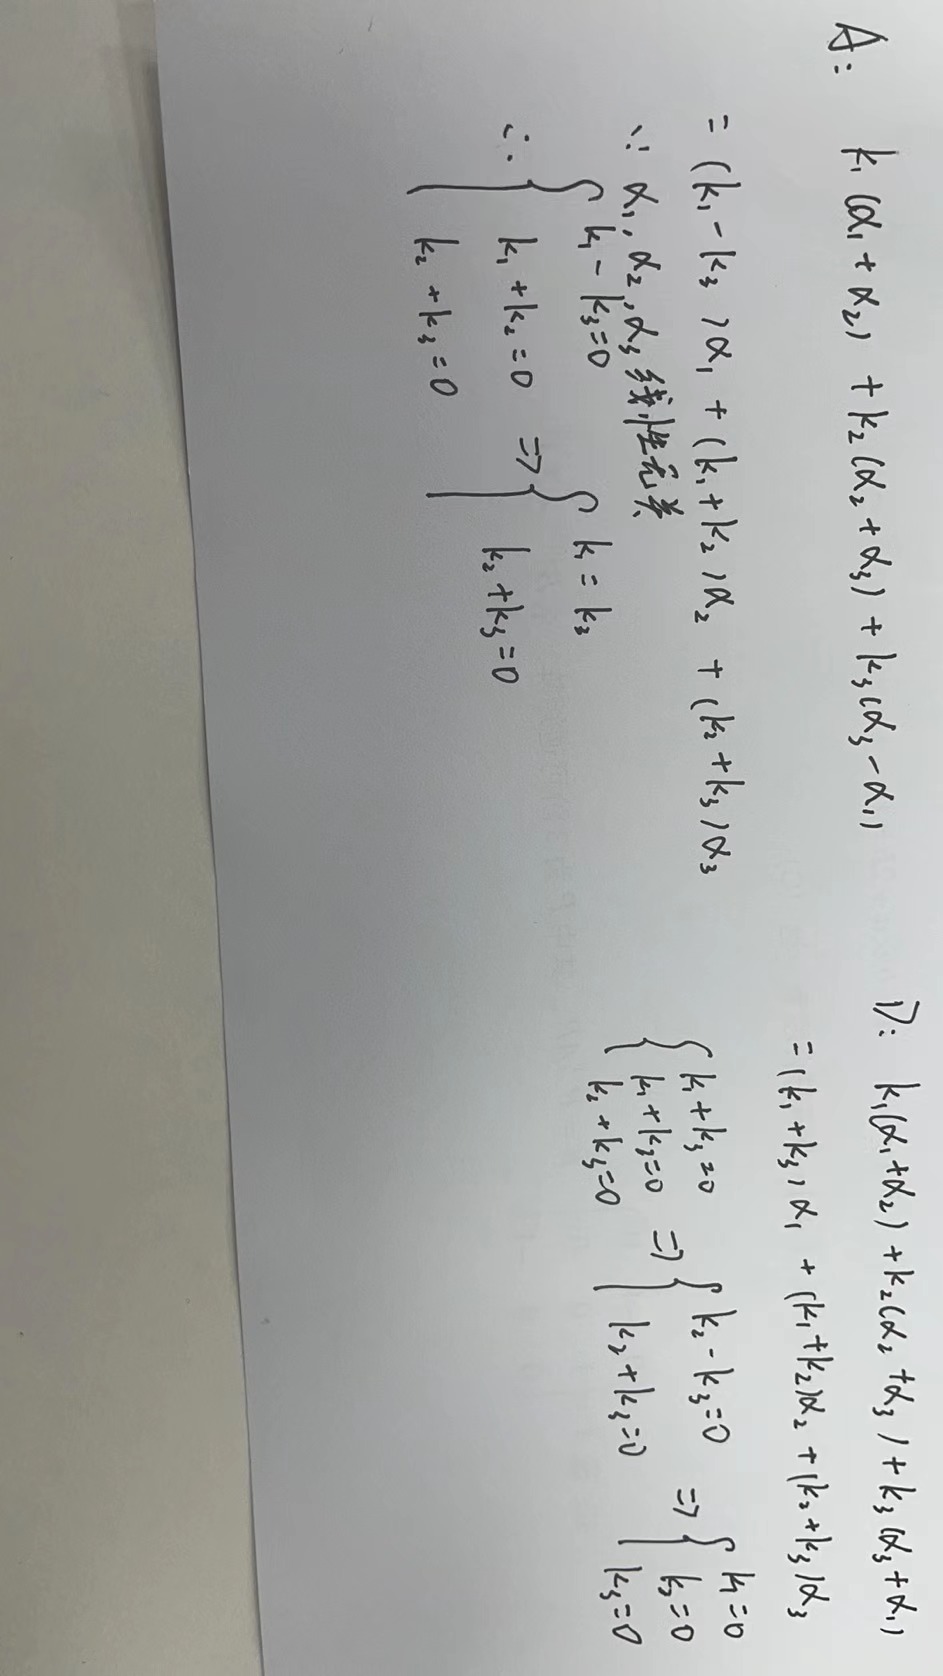 A: k₁(α₁+α₂) + k₂(α₂+α₃) + k₃(α₃-α₁)
= (k₁-k₃)α₁ + (k₁+k₂)α₂ + (k₂+k₃)α₃
∵ α₁,α₂,α₃线性无关
∴ { k₁-k₃=0
k₁+k₂=0 ⇒ { k₁=k₃
k₂+k₃=0 k₂+k₃=0
D: k₁(α₁+α₂)+k₂(α₂+α₃)+k₃(α₃+α₁)
=(k₁+k₃)α₁ + (k₁+k₂)α₂+(k₂+k₃)α₃
{ k₁+k₃=0 { k₂-k₃=0 { k₁=0
k₁+k₂=0 ⇒ ⇒ k₂=0
k₂+k₃=0 k₂+k₃=0 k₃=0